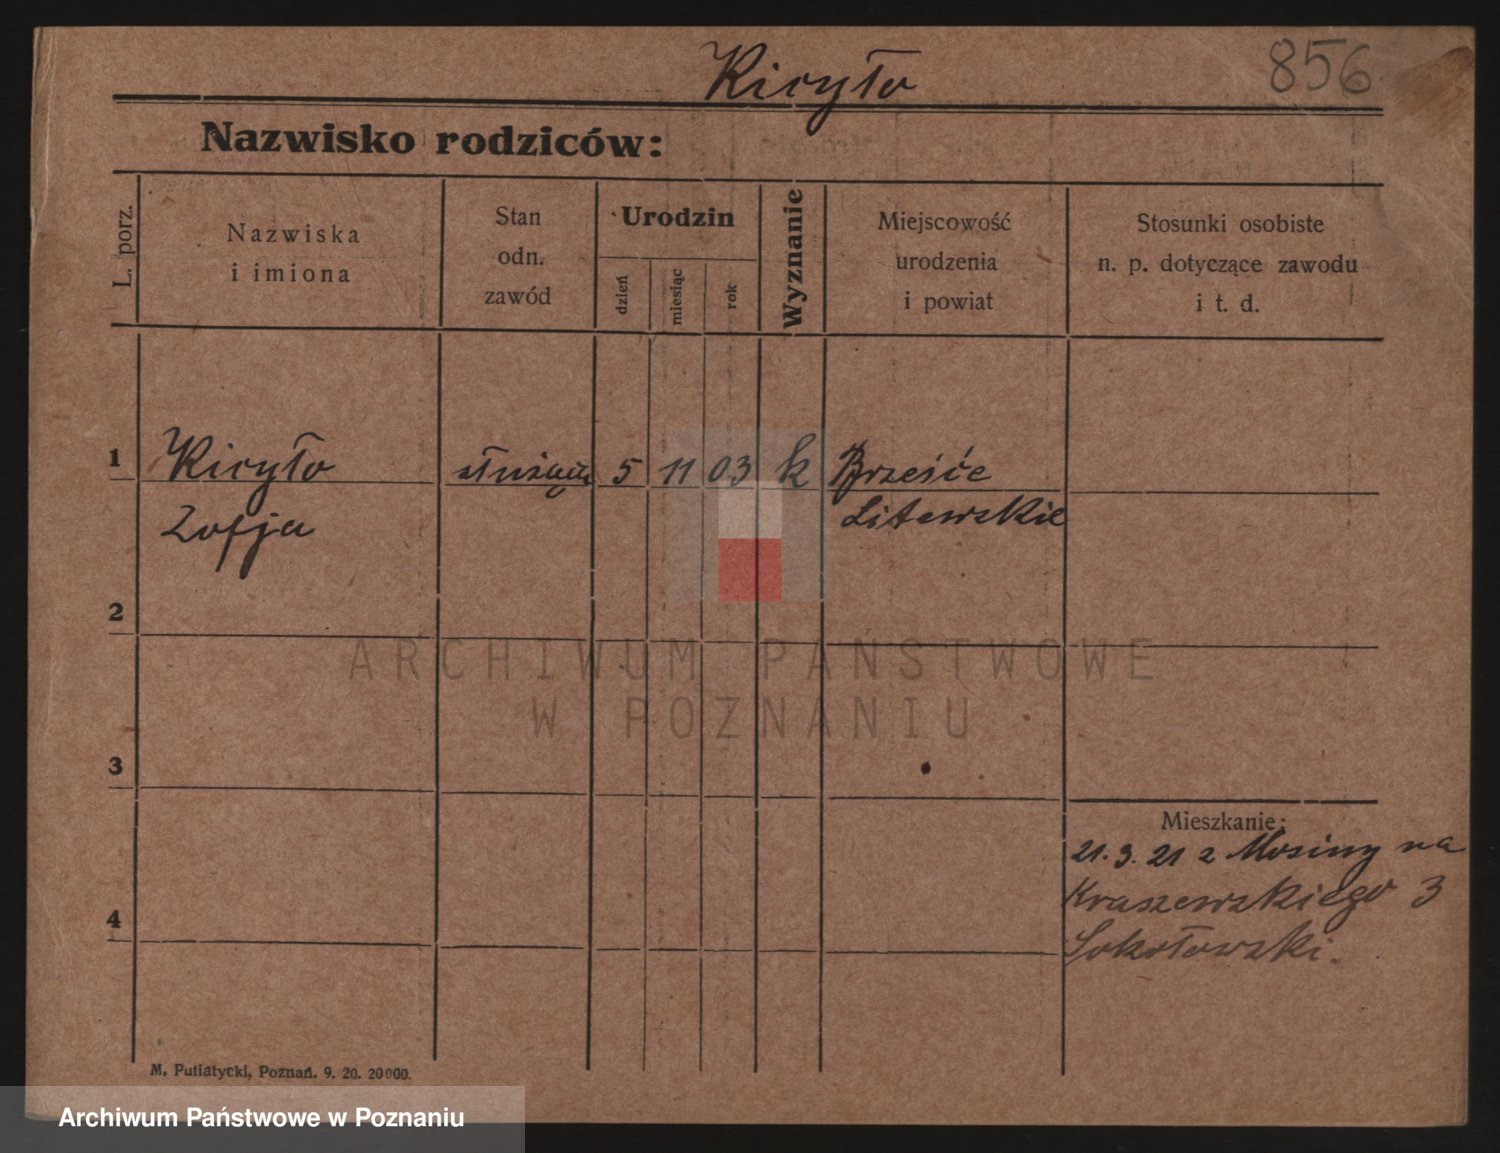 Kicyło
856
Nazwisko rodziców:
L. porz.
Nazwiska
i imiona
Stan
odn.
zawód
Urodzin
dzień
miesiąc
rok
Wyznanie
Miejscowość
urodzenia
i powiat
Stosunki osobiste
n. p. dotyczące zawodu
i t. d.
1
Kicyło
służąca
5
11
03
k
Brześće
Zofja
Litewskie
2
ARCHIWUM PAŃSTWOWE
W POZNANIU
3
Mieszkanie:
21.3.21 z Mosiny na
Kraszewskiego 3
4
Sokołowski.
M. Putiatycki, Poznań. 9. 20. 20000.
Archiwum Państwowe w Poznaniu